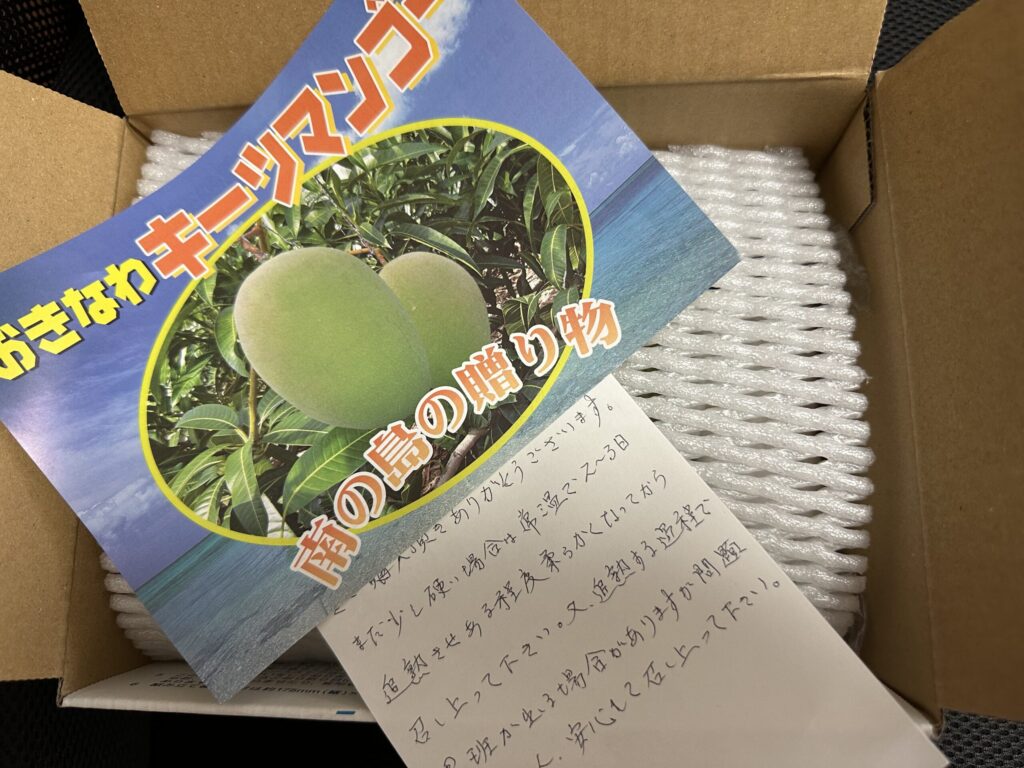 おきなわ
キーツマンゴー
南の島の贈り物
入頂きありがとうございます。
まだ少し硬い場合は常温で2〜3日
追熟させある程度柔らかくなってから
召し上って下さい。又、追熟する過程で
班が出る場合がありますが問題
安心して召し上って下さい。